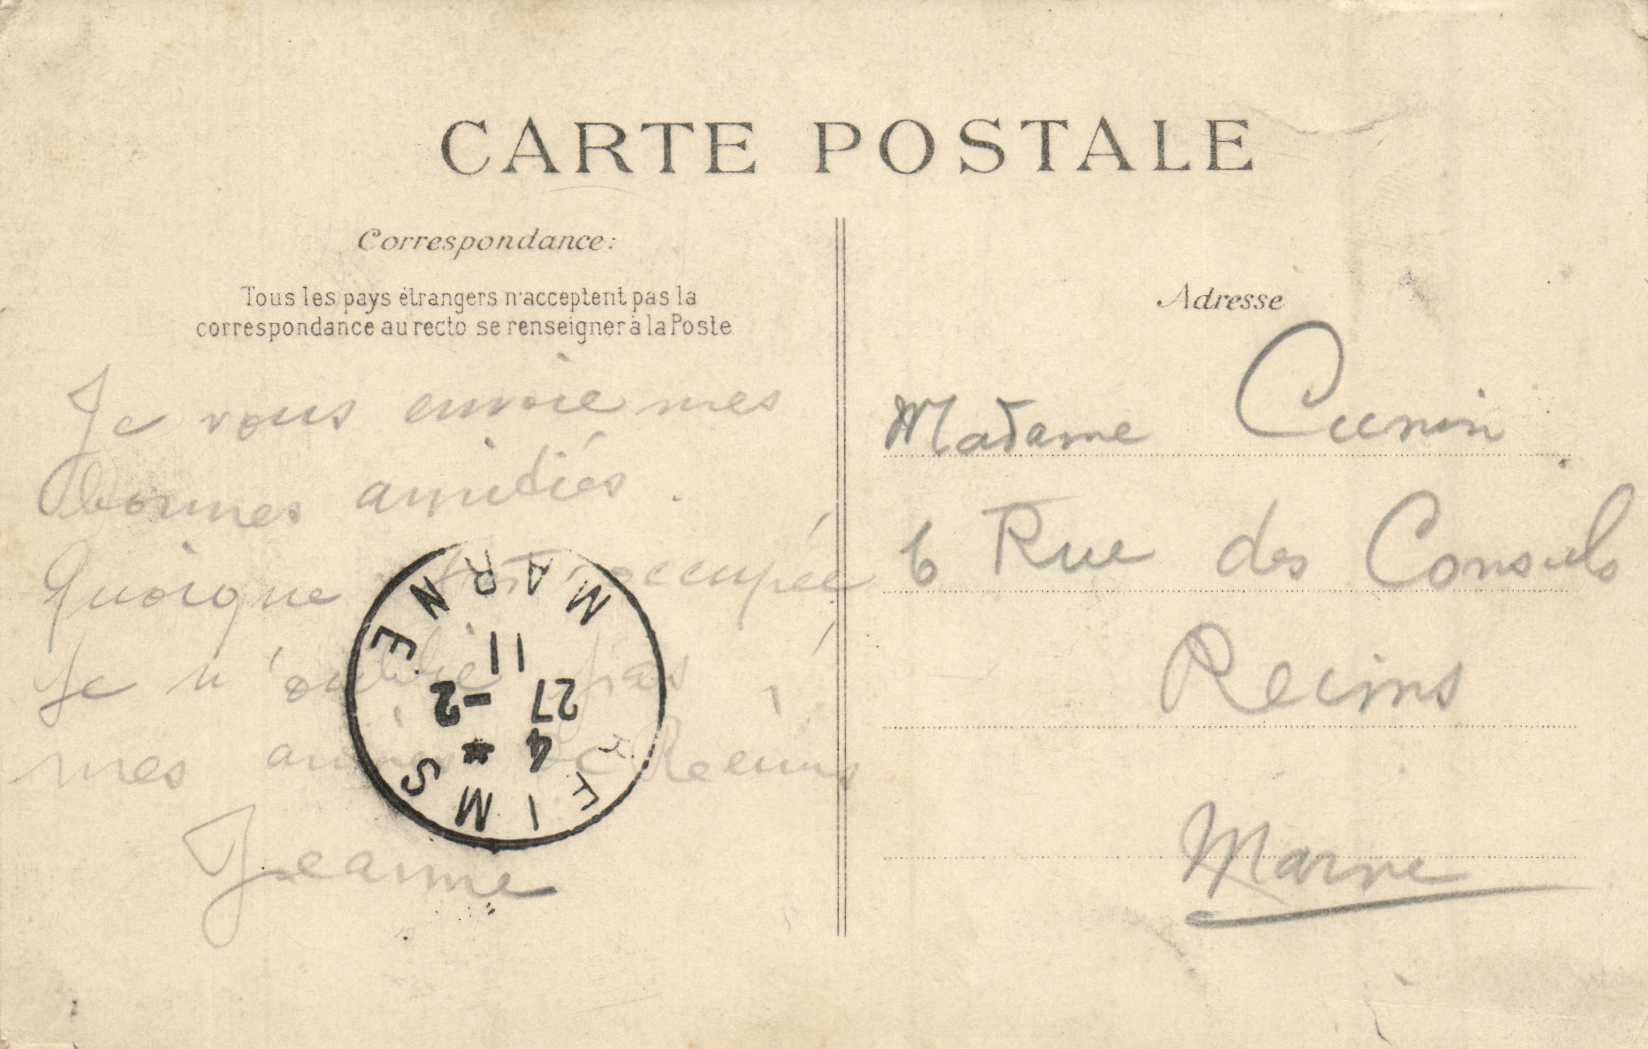 CARTE POSTALE
Correspondance:
Tous les pays étrangers n'acceptent pas la
correspondance au recto se renseigner à la Poste
Je vous envoie mes
bonnes amitiés.
Quoique occupée
je n'oublie pas
mes Reims
Jeanne
REIMS
4
27 -2
11
MARNE
Adresse
Madame Cunin
6 Rue des Consuls
Reims
Marne